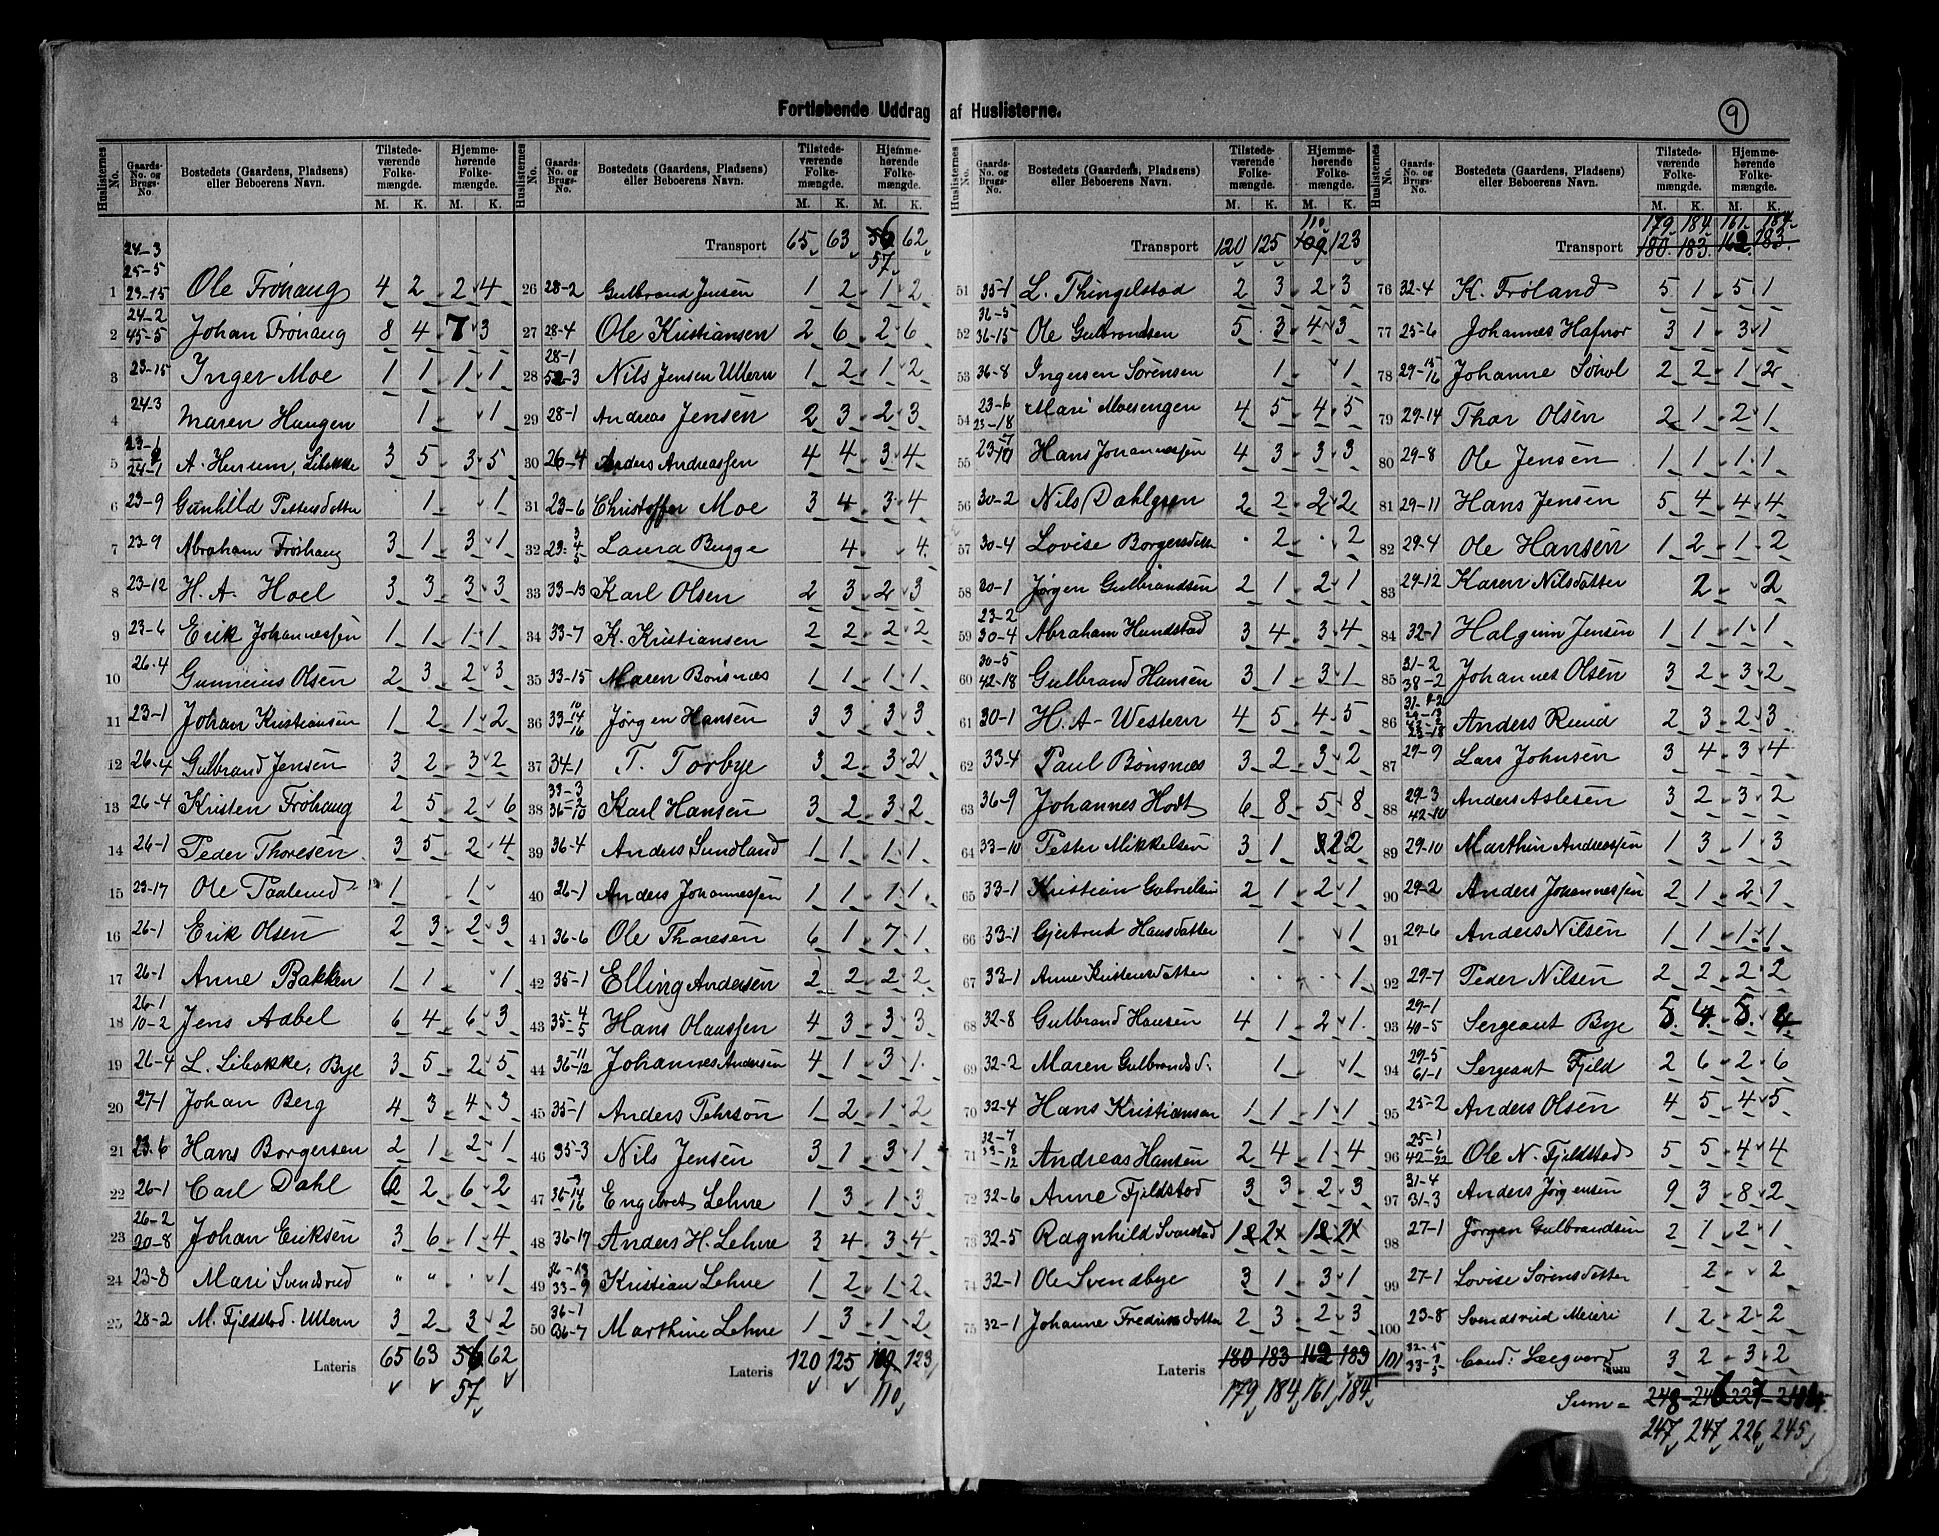 Fortløbende Uddrag af Huslisterne.
9
Huslisternes No. | Gaards-No. og Brugs-No. | Bostedets (Gaardens, Pladsens) eller Beboerens Navn. | Tilstedeværende Folkemængde. M. K. | Hjemmehørende Folkemængde. M. K.
1 24-3 25-5 23-15 Ole Fröhaug 4 2 2 4
2 24-2 45-5 Johan Fröhaug 8 4 7 3
3 23-15 Inger Moe 1 1 1 1
4 24-3 Maren Haugen 1 1
5 24-1 A. Herum, Libakke 3 5 3 5
6 23-9 Gunhild Pettersdatter 1 1
7 23-9 Abraham Fröhaug 3 1 3 1
8 23-12 H. A. Hoel 3 3 3 3
9 23-6 Erik Johannessen 1 1 1 1
10 26-4 Gunneius Olsen 2 3 2 3
11 23-1 Johan Kristiansen 1 2 1 2
12 26-4 Gulbrand Jensen 3 2 3 2
13 26-4 Kristen Fröhaug 2 5 2 6
14 26-1 Peder Thoresen 3 5 2 4
15 23-17 Ole Paalerud 1 1
16 26-1 Erik Olsen 2 3 2 3
17 26-1 Anne Bakken 1 1 1
18 26-1 10-2 Jens Aabel 6 4 6 3
19 26-4 L. Libakke, Bye 3 5 2 5
20 27-1 Johan Berg 4 3 4 3
21 23-6 Hans Borgersen 2 1 2 1
22 26-1 Carl Dahl 6 2 6 2
23 26-2 20-8 Johan Eriksen 3 6 1 4
24 23-8 Mari Svendsrud " " . 1
25 28-2 M. Fjeldstad. Ullern 3 2 3 2
Lateris 65 63 56 62
57
Transport 65 63 56 62
57
26 28-2 Gulbrand Jensen 1 2 1 2
27 28-4 Ole Kristiansen 2 6 2 6
28 28-1 52-3 Nils Jensen Ullern 1 2 1 2
29 28-1 Andreas Jensen 2 3 2 3
30 26-4 Anders Andreassen 4 4 3 4
31 23-6 Christoffer Moe 3 4 3 4
32 23-3 4 5 Laura Bugge 4 4
33 33-13 Karl Olsen 2 3 2 3
34 33-7 K. Kristiansen 2 2 2 2
35 33-15 Maren Bönsnæs 1 1 1 1
36 33-10 14 16 Jörgen Hansen 3 3 3 3
37 34-1 T. Torbye 3 2 3 2
38 33-3 36-2 10 Karl Hansen 3 2 3 2
39 36-4 Anders Sundland 1 1 1 1
40 26-1 Anders Johannessen 1 1 1 1
41 36-6 Ole Thoresen 6 1 7 1
42 35-1 Elling Andersen 2 2 2 2
43 35-4 5 Hans Olaussen 4 3 3 3
44 36-11 36-12 Johannes Andersen 4 1 3 1
45 35-1 Anders Pehrson 1 2 1 2
46 35-3 Nils Jensen 3 1 3 1
47 36-3 14 16 Engebret Lehne 1 3 1 3
48 36-17 Anders H. Lehne 3 4 3 4
49 36-13 33-9 Kristian Lehne 1 2 1 2
50 36-1 36-7 Marthine Lehne 1 3 1 2
Lateris 120 125 109 123
110
Transport 120 125 109 123
110
51 35-1 L. Thingelstad 2 3 2 3
52 36-5 36-15 Ole Gulbrandsen 5 3 4 3
53 36-8 Ingersen Sörensen 1 1
54 23-6 23-18 Mari Moesengen 4 5 4 5
55 Hans Johannessen 4 3 3 3
56 30-2 Nils Dahlgren 2 2 2 2
57 30-4 Lovise Borgersdatter . 2 . 2
58 30-1 Jörgen Gulbrandsen 2 1 2 1
59 23-2 30-4 Abraham Hundstad 3 4 3 4
60 30-5 42-18 Gulbrand Hansen 3 1 3 1
61 30-1 H. A. Western 4 5 4 5
62 33-4 Paul Bönsnæs 3 2 3 2
63 36-9 Johannes Hodt 6 8 5 8
64 33-10 Petter Mikkelsen 3 1 2 2
65 33-1 Kristian Gabrielsen 2 1 2 1
66 33-1 Gjertrud Hansdatter 1 1
67 33-1 Anne Kristensdatter . . . 1
68 32-8 Gulbrand Hansen 4 1 2 1
69 32-2 Maren Gulbrandsd: 1 1
70 32-4 Hans Kristiansen 1 1 1 1
71 32-7 33-8 12 Andreas Hansen 2 4 1 4
72 32-6 Anne Fjeldstad 3 3 2 3
73 32-5 Ragnhild Svarstad
74 32-1 Ole Svendbye 3 1 3 1
75 32-1 Johanne Fredriksdatter 2 3 2 3
Lateris 180 183 162 183
179 184 161 184
Transport 180 183 162 183
179 184 161 184
76 32-4 K. Fröland 5 1 5 1
77 25-6 Johannes Hafnor 3 1 3 1
78 29-15 16 Johanne Söhol 2 2 1 2
79 29-14 Thor Olsen 2 1 2 1
80 29-8 Ole Jensen 1 1 1 1
81 29-11 Hans Jensen 5 4 4 4
82 29-4 Ole Hansen 1 2 1 2
83 29-12 Karen Nilsdatter 2 2
84 32-1 Halgrim Jensen 1 1 1 1
85 31-2 38-2 Johannes Olsen 3 2 3 2
86 Anders Ruud 2 3 2 3
87 29-9 Lars Johnsen 3 4 3 4
88 29-3 42-10 Anders Aslesen 3 2 3 2
89 29-10 Marthin Andreassen 1 3 1 3
90 29-2 Anders Johannessen 2 1 2 1
91 29-6 Anders Nilsen 1 1 1 1
92 29-7 Peder Nilsen 2 2 2 2
93 29-1 40-5 Sergeant Bye 5 4 5 4
94 29-5 61-1 Sergeant Fjeld 2 6 2 6
95 25-2 Anders Olsen 4 5 4 5
96 25-1 42-6 22 Ole N. Fjeldstad 5 5 4 4
97 31-4 31-3 Anders Jörgensen 9 3 8 2
98 27-1 Jörgen Gulbrandsen 2 1 2 1
99 27-1 Lovise Sörensdatter 2 2
100 23-8 Svendsrud Meieri 1 2 2 2
101 Cand: Lægvard 3 2 3 2
Sum
Sum = 248 246 227
247 247 226 245